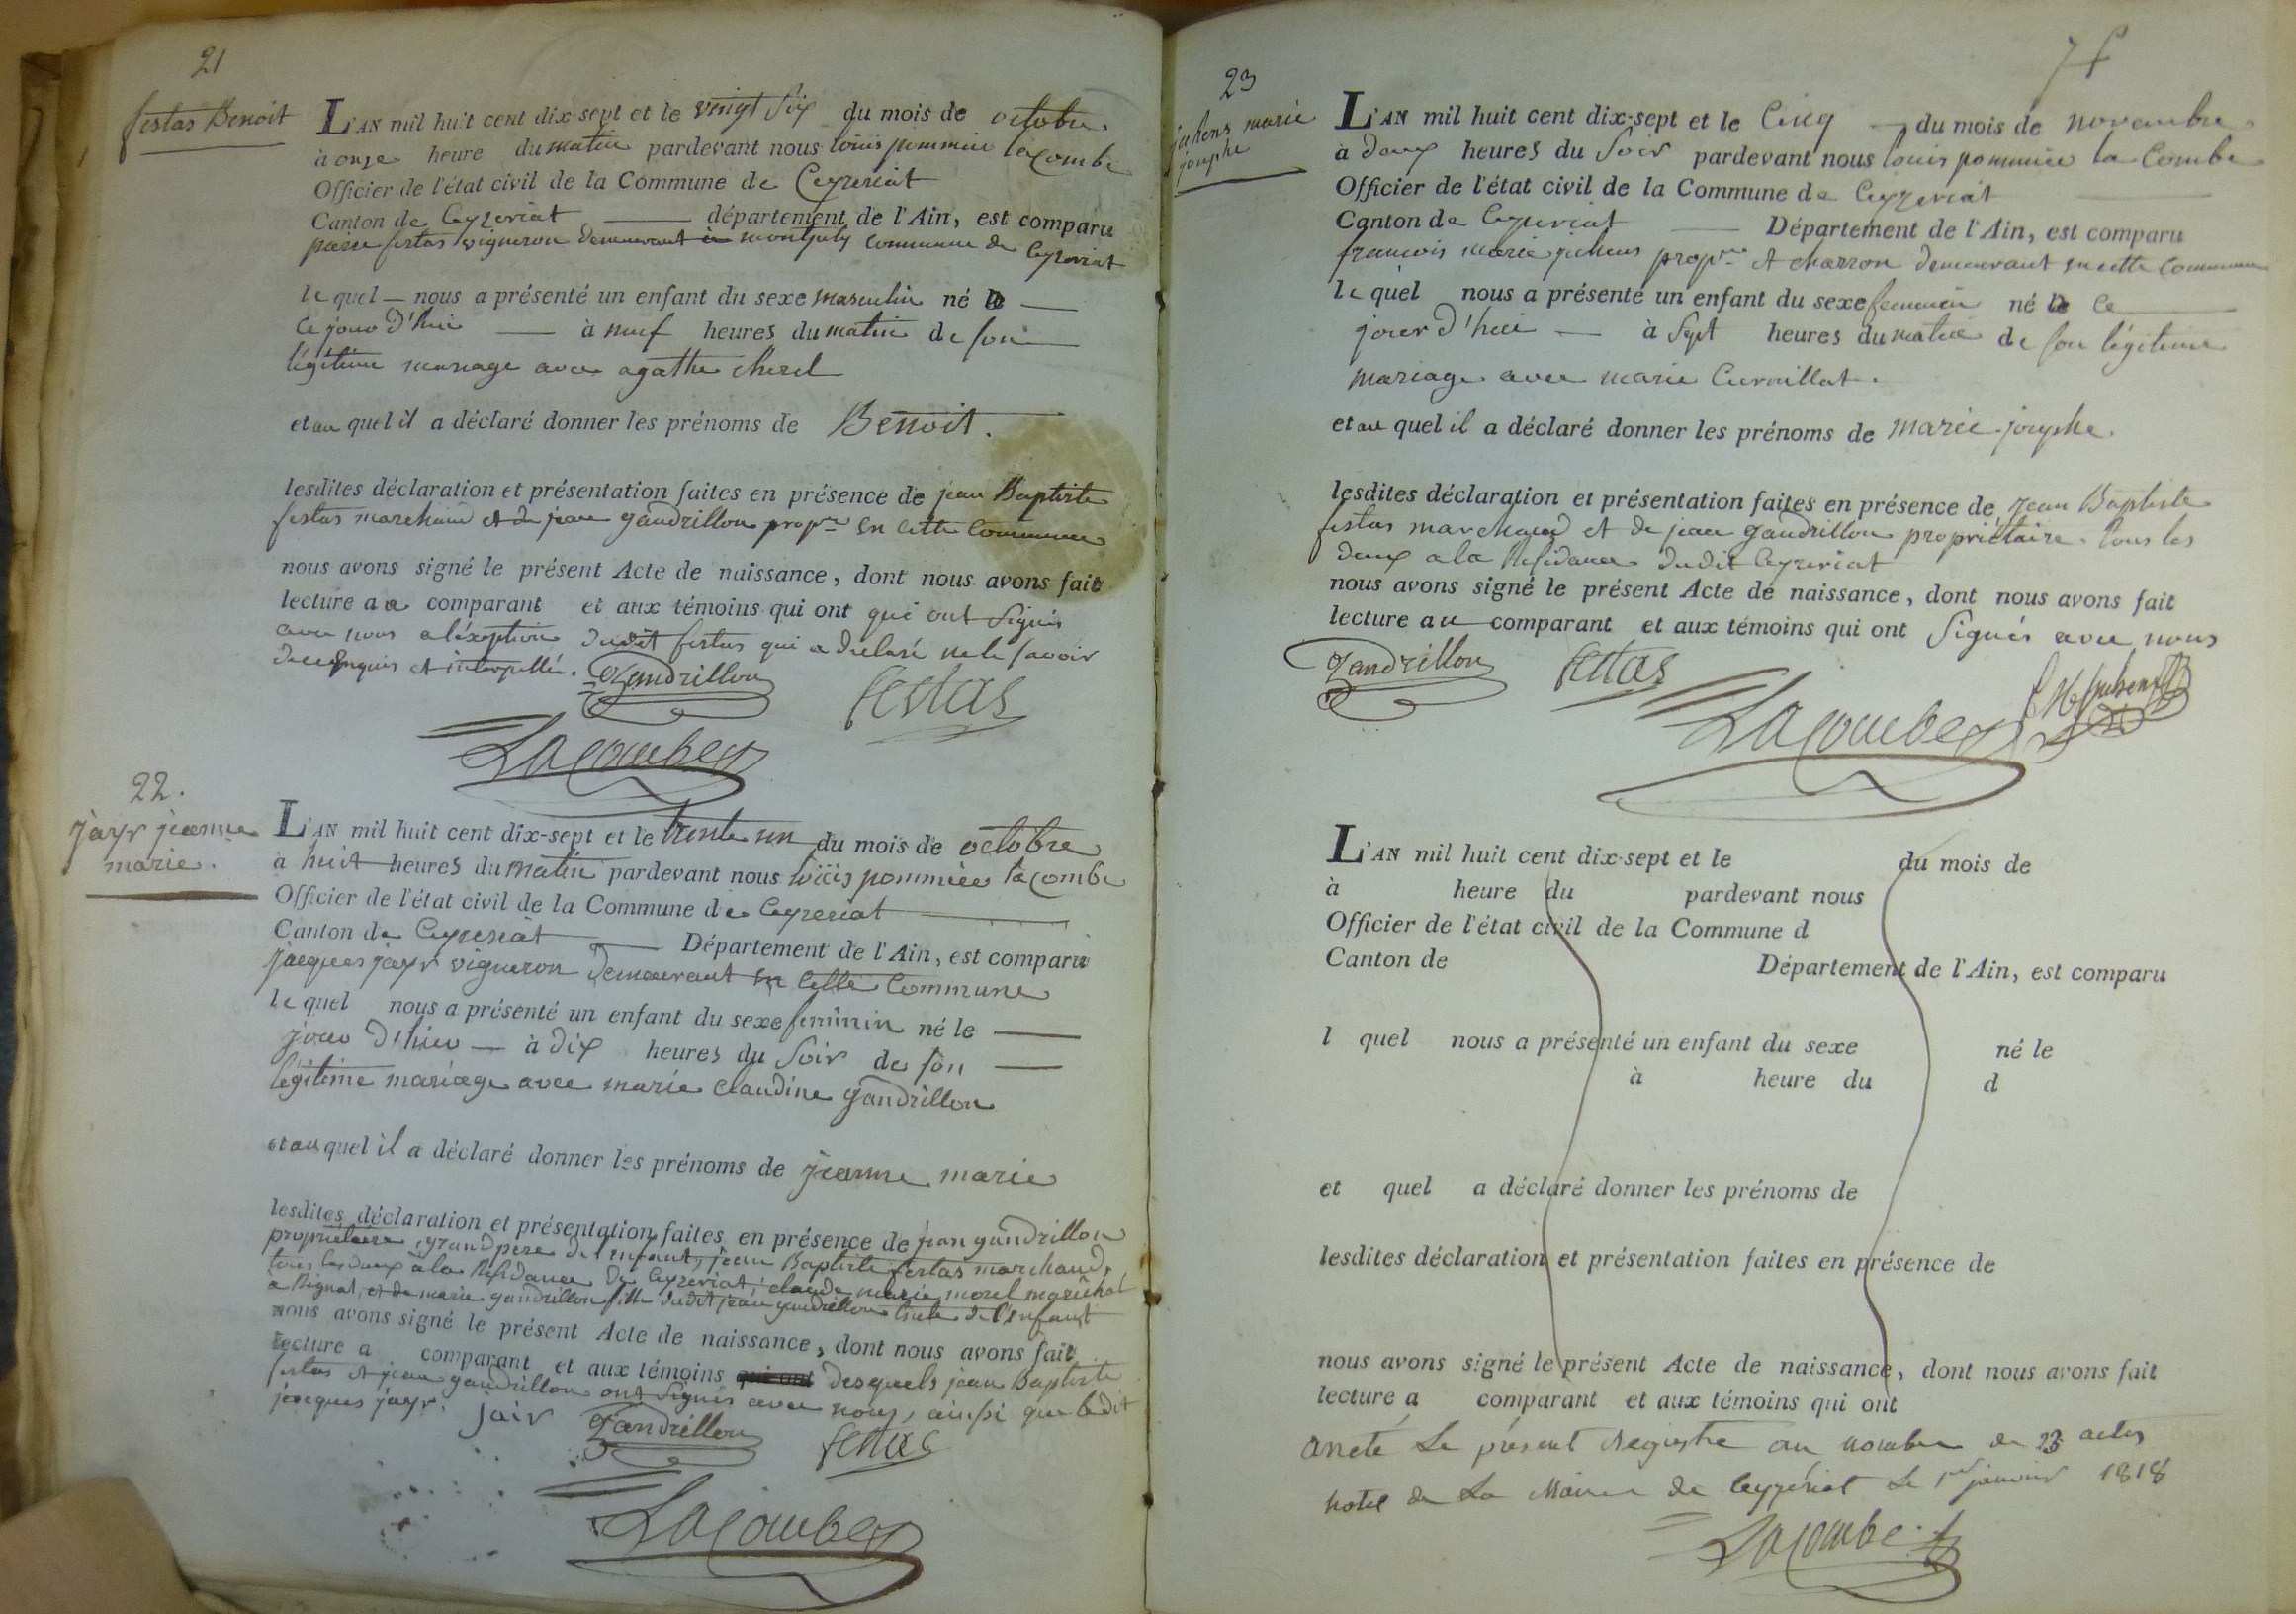 21
festas Benoit
L'AN mil huit cent dix-sept et le vingt six du mois de octobre
à onze heure du matin pardevant nous louis pommier lacombe
Officier de l'état civil de la Commune de Ceyzeriat
Canton de Ceyzeriat département de l'Ain, est comparu
pierre festas vigneron demeurant à montjuly commune de Ceyzeriat
le quel nous a présenté un enfant du sexe masculin né
ce jour d'hui à neuf heures du matin de son
légitime mariage avec agathe cherel
et au quel il a déclaré donner les prénoms de Benoit.
lesdites déclaration et présentation faites en présence de jean Baptiste
festas marchand et de jean gandrillon propre en cette commune
nous avons signé le présent Acte de naissance, dont nous avons fait
lecture au comparant et aux témoins qui ont qui ont signés
avec nous a l'éxeption dudit festas qui a declaré ne le savoir
de ce enquis et interpellé. Gandrillon festas
Lacombe
22.
jayr jeanne
marie.
L'AN mil huit cent dix-sept et le trente un du mois de octobre
à huit heures du matin pardevant nous louis pommier lacombe
Officier de l'état civil de la Commune de Ceyzeriat
Canton de Ceyzeriat Département de l'Ain, est comparu
jacques jayr vigneron demeurant en cette commune
le quel nous a présenté un enfant du sexe feminin né le
jour d'hier à dix heures du soir de son
légitime mariage avec marie claudine gandrillon
et au quel il a déclaré donner les prénoms de jeanne marie
lesdites déclaration et présentation faites en présence de jean gandrillon
propriétaire, grand pere de l'enfant, jean Baptiste festas marchand,
tous les deux à la Residance de Ceyzeriat, claude marie morel maréchal
a Rignat, et de marie gandrillon fille dudit jean gandrillon tante de l'enfant
nous avons signé le présent Acte de naissance, dont nous avons fait
lecture a comparant et aux témoins qui ont desquels jean Baptiste
festas et jean gandrillon ont signés avec nous, ainsi que ledit
jacques jayr. jair Gandrillon festas
Lacombe
23
juhens marie
josephe
L'AN mil huit cent dix-sept et le Cinq du mois de novembre
à deux heures du soir pardevant nous louis pommier la Combe
Officier de l'état civil de la Commune de Ceyzeriat
Canton de Ceyzeriat Département de l'Ain, est comparu
francois marie juhens propre et charron demeurant en cette commune
le quel nous a présenté un enfant du sexe feminin né ce
jour d'hui à sept heures du matin de son légitime
mariage avec marie Curvillat.
et au quel il a déclaré donner les prénoms de marie josephe.
lesdites déclaration et présentation faites en présence de jean Baptiste
festas marchand et de jean gandrillon propriétaire. tous les
deux a la Residance dudit Ceyzeriat
nous avons signé le présent Acte de naissance, dont nous avons fait
lecture au comparant et aux témoins qui ont signés avec nous
Gandrillon festas
Lacombe
L'AN mil huit cent dix-sept et le du mois de
à heure du pardevant nous
Officier de l'état civil de la Commune d
Canton de Département de l'Ain, est comparu
l quel nous a présenté un enfant du sexe né le
à heure du d
et quel a déclaré donner les prénoms de
lesdites déclaration et présentation faites en présence de
nous avons signé le présent Acte de naissance, dont nous avons fait
lecture a comparant et aux témoins qui ont
arreté Le présent Registre au nombre de 23 actes
hotel de La Mairie de Ceyzériat Le 1er janvier 1818
Lacombe